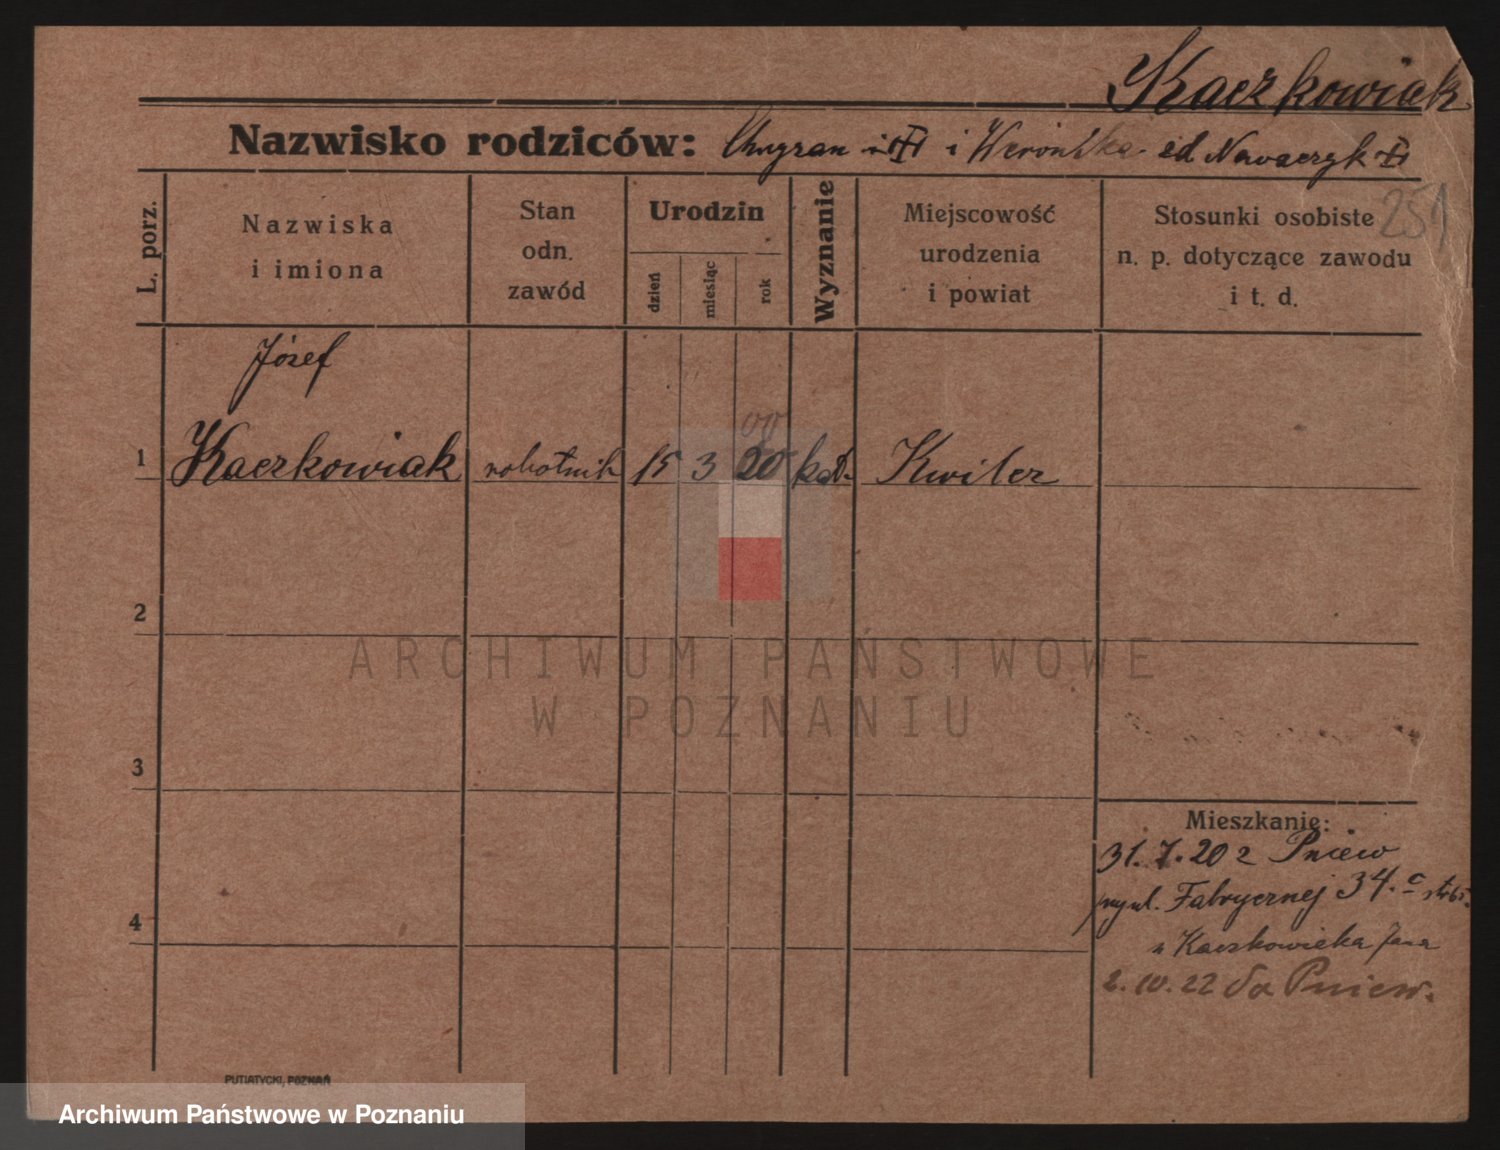 Kaczkowiak
Nazwisko rodziców: i Weronika
251
L. porz.
Nazwiska
i imiona
Stan
odn.
zawód
Urodzin
dzień
miesiąc
rok
Wyznanie
Miejscowość
urodzenia
i powiat
Stosunki osobiste
n. p. dotyczące zawodu
i t. d.
Józef
00
1 Kaczkowiak robotnik 15 3 20 kat. Kwilcz
2
3
4
ARCHIWUM PAŃSTWOWE
W POZNANIU
Mieszkanie:
31.7.20 z Pniew
Fabrycznej 34.
u Kaczkowiaka Jana
2.10.22 do Pniew.
PUTIATYCKI, POZNAŃ
Archiwum Państwowe w Poznaniu